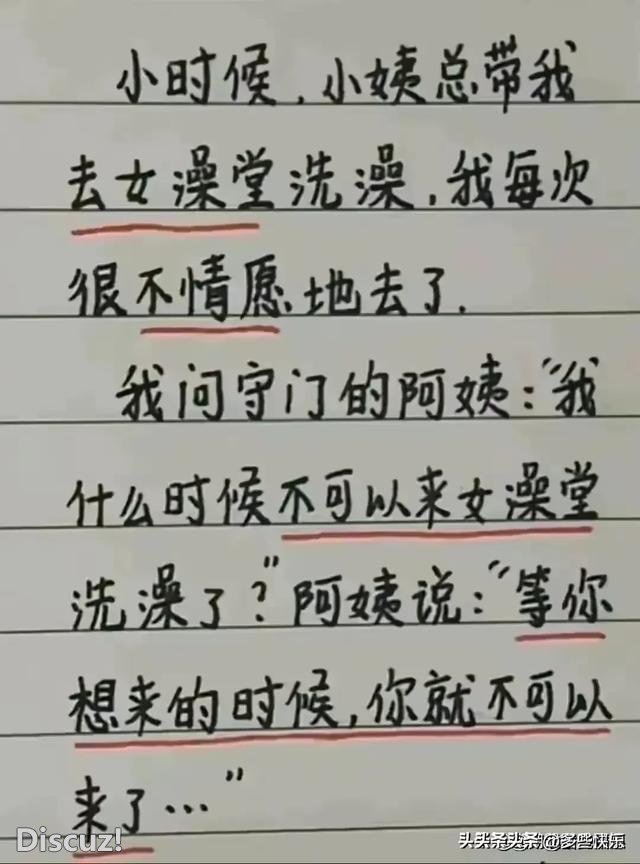 小时候,小姨总带我
去女澡堂洗澡,我每次
很不情愿地去了.
我问守门的阿姨:“我
什么时候不可以来女澡堂
洗澡了?”阿姨说:“等你
想来的时候,你就不可以
来了…”
Discuz!
头头条头条@多些快乐